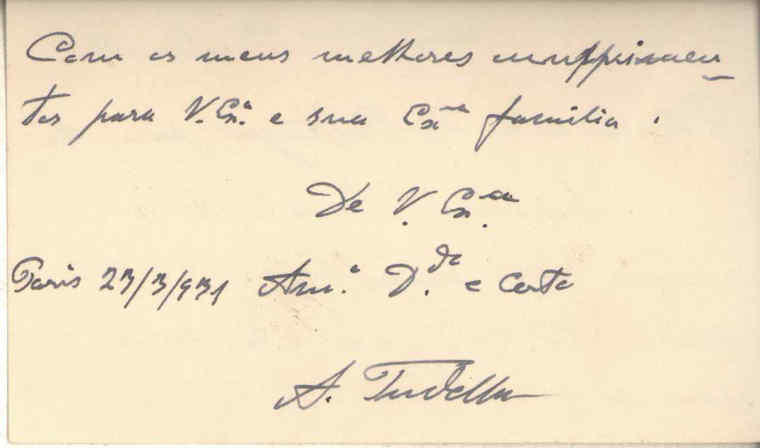 Com os meus melhores cumprimen-
tos para V. Exª e sua Exᵐᵃ familia.
De V. Exª
Paris 23/3/931 Am.º D.do e certo
A. Tudella